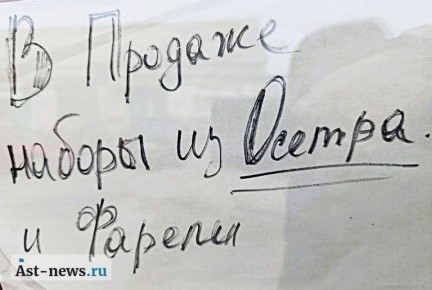 В Продаже
наборы из Осетра.
и Фарели
Ast-news.ru